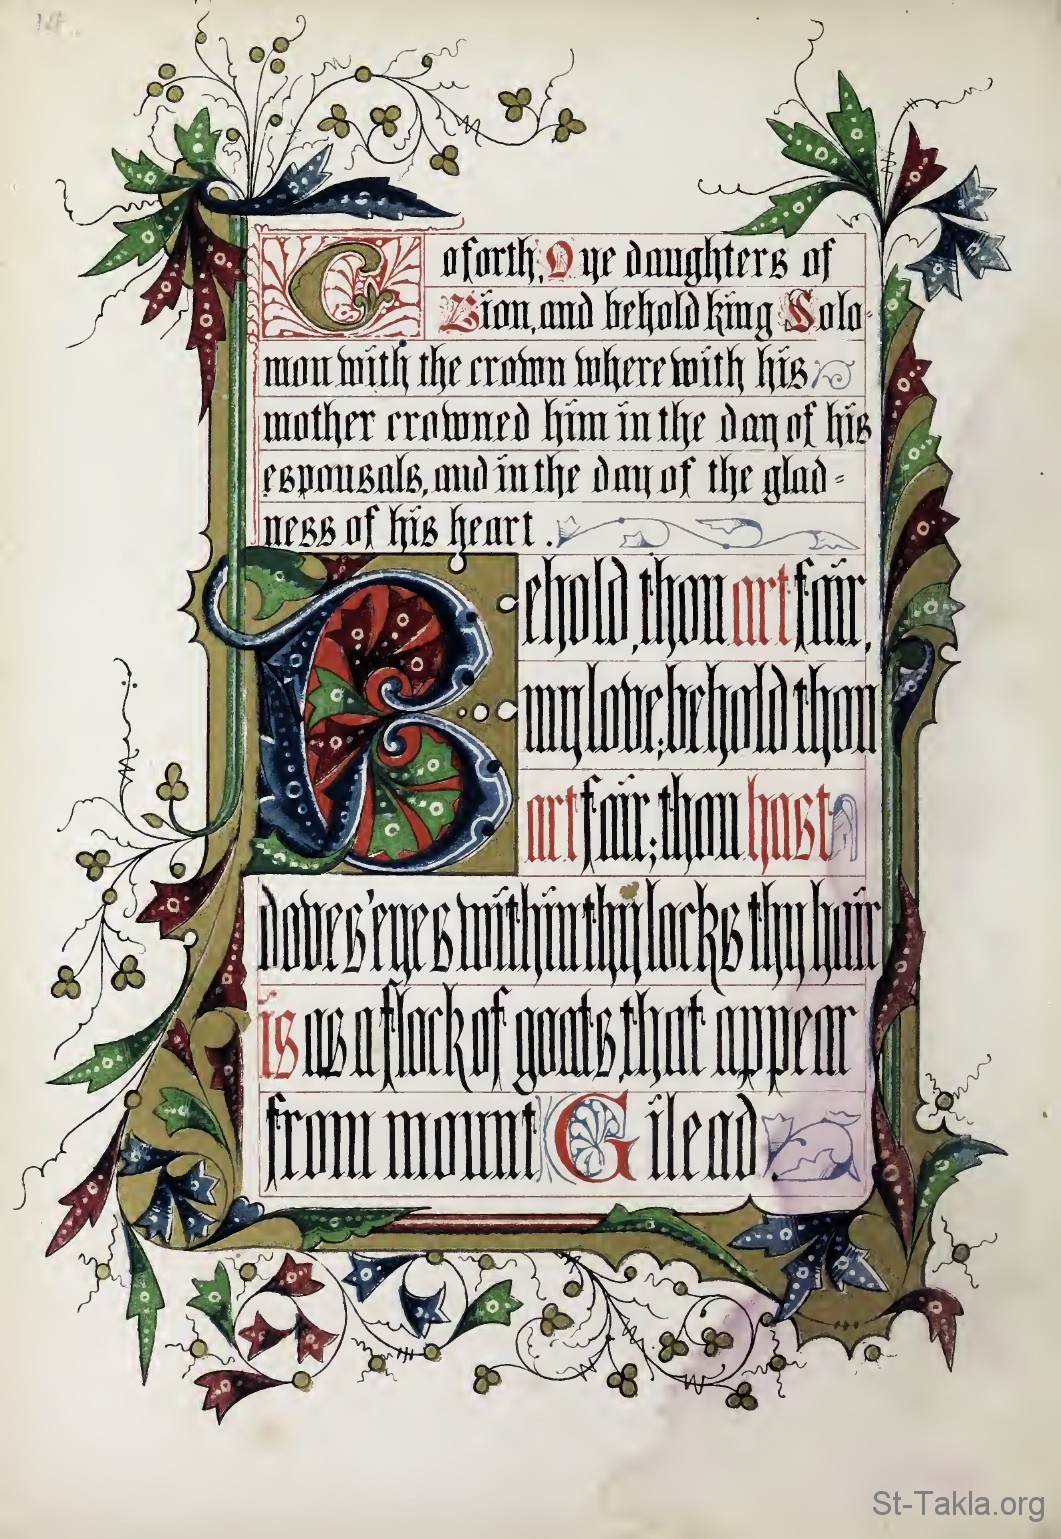 Go forth, O ye daughters of
Zion, and behold king Solo-
mon with the crown where with his
mother crowned him in the day of his
espousals, and in the day of the glad=
ness of his heart.
Behold, thou art fair,
my love; behold thou
art fair; thou hast
doves' eyes within thy locks thy hair
is as a flock of goats, that appear
from mount Gilead.
St-Takla.org